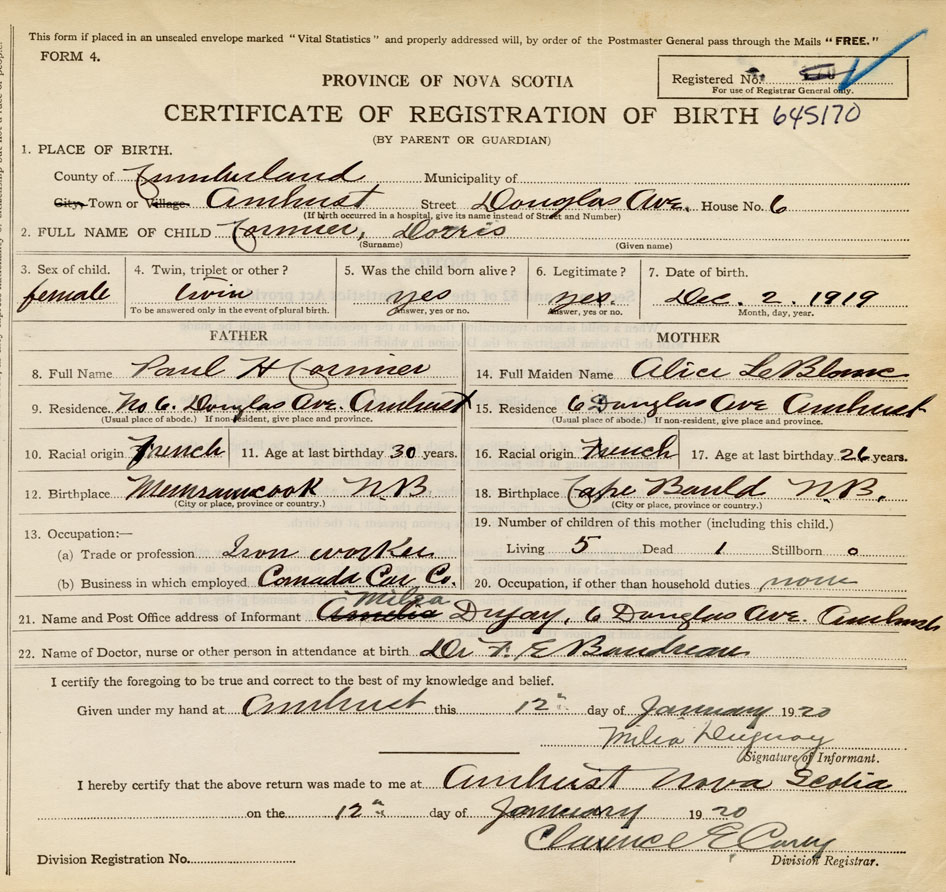 This form if placed in an unsealed envelope marked "Vital Statistics" and properly addressed will, by order of the Postmaster General pass through the Mails "FREE."
FORM 4.
Registered No.
For use of Registrar General only.
PROVINCE OF NOVA SCOTIA
CERTIFICATE OF REGISTRATION OF BIRTH 645170
(BY PARENT OR GUARDIAN)
1. PLACE OF BIRTH.
County of Cumberland Municipality of
City, Town or Village Amherst Street Douglas Ave. House No. 6
(If birth occurred in a hospital, give its name instead of Street and Number)
2. FULL NAME OF CHILD Cormier, Dorris
(Surname) (Given name)
3. Sex of child. 4. Twin, triplet or other? 5. Was the child born alive? 6. Legitimate? 7. Date of birth.
female twin yes yes. Dec. 2. 1919
To be answered only in the event of plural birth. Answer, yes or no. Answer, yes or no. Month, day, year.
FATHER
8. Full Name Paul H Cormier
9. Residence. No 6. Douglas Ave. Amherst
(Usual place of abode.) If non-resident, give place and province.
10. Racial origin French 11. Age at last birthday 30 years.
12. Birthplace Memramcook N.B
(City or place, province or country.)
13. Occupation:—
(a) Trade or profession Iron worker
(b) Business in which employed Canada Car Co.
MOTHER
14. Full Maiden Name Alice LeBlanc
15. Residence 6 Douglas Ave Amherst
(Usual place of abode.) If non-resident, give place and province.
16. Racial origin French 17. Age at last birthday 26 years.
18. Birthplace Cape Bauld N.B.
(City or place, province or country.)
19. Number of children of this mother (including this child.)
Living 5 Dead 1 Stillborn 0
20. Occupation, if other than household duties. none
Milea
21. Name and Post Office address of Informant Dugay, 6 Douglas Ave. Amherst
22. Name of Doctor, nurse or other person in attendance at birth Dr F. E Boudreau
I certify the foregoing to be true and correct to the best of my knowledge and belief.
Given under my hand at Amherst this 12 day of January 1920
Milea Duguay
Signature of Informant.
I hereby certify that the above return was made to me at Amherst Nova Scotia
on the 12 day of January 1920
Clarence E
Division Registration No. Division Registrar.